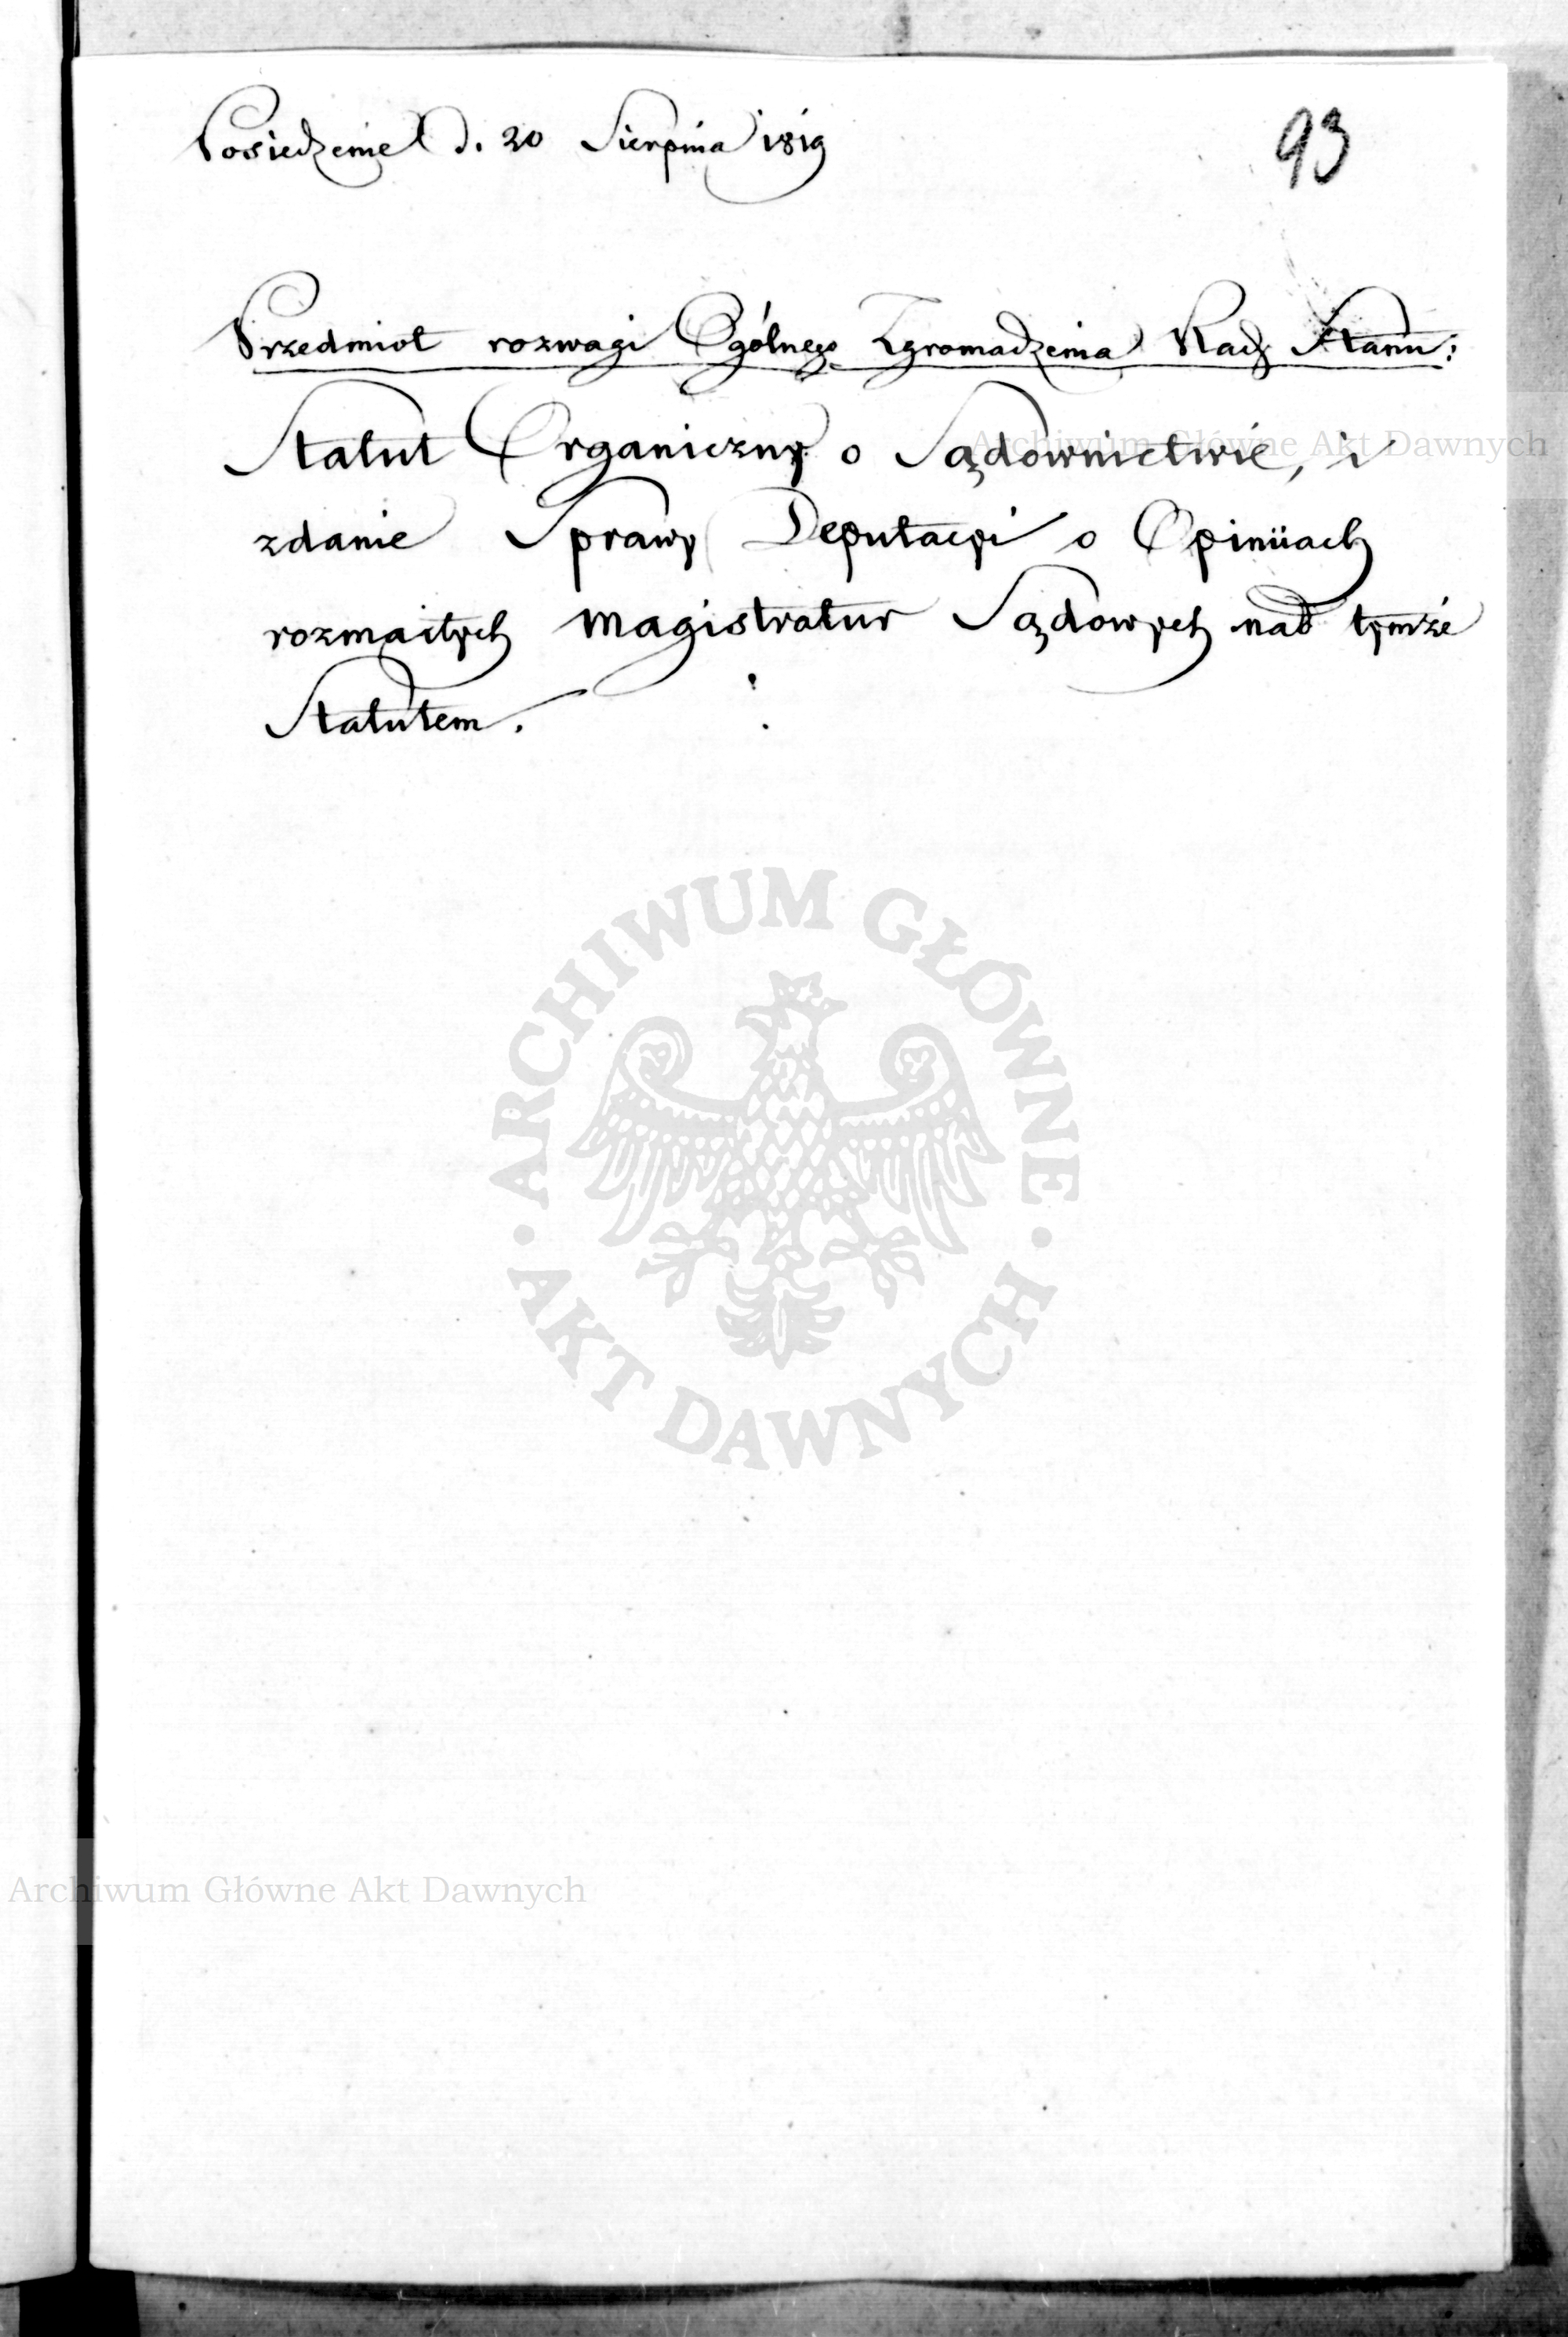 Posiedzenie d. 20 Sierpnia 1819
93
Przedmiot rozwagi Ogólnego Zgromadzenia Rady Stanu:
Statut Organiczny o Sądownictwie, i
zdanie Sprawy Deputacyi o Opiniiach
rozmaitych Magistratur Sądowych nad tymże
Statutem.
Archiwum Główne Akt Dawnych
ARCHIWUM GŁÓWNE
AKT DAWNYCH
Archiwum Główne Akt Dawnych